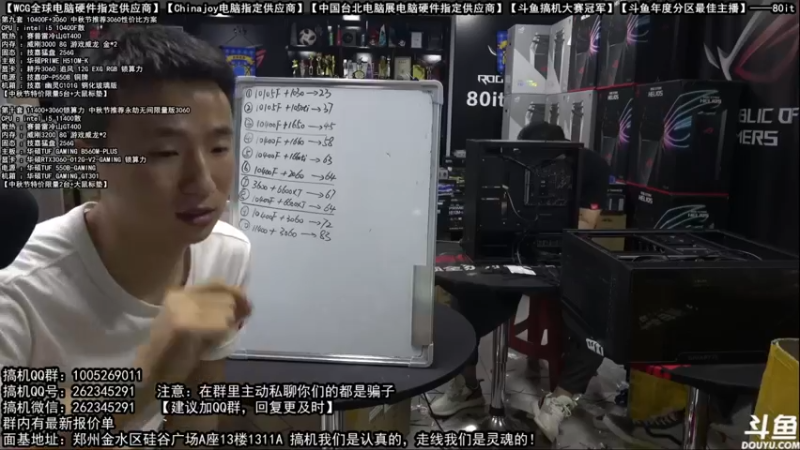 【WCG全球电脑硬件指定供应商】【Chinajoy电脑指定供应商】【中国台北电脑展电脑硬件指定供应商】【斗鱼搞机大赛冠军】【斗鱼年度分区最佳主播】——80it
第九套 10400F+3060 中秋节推荐3060性价比方案
CPU：intel i5 10400F散
散热：赛普雷冷山GT400
内存：威刚3000 8G 游戏威龙 金*2
固态：技嘉猛盘 256G
主板：华硕PRIME H510M-K
显卡：耕升3060 追风 12G EXG RGB 锁算力
电源：技嘉GP-P550B 铜牌
机箱：技嘉 幽灵C101G 钢化玻璃版
【中秋节特价限量5台+大鼠标垫】
第十套 11400+3060锁算力 中秋节推荐永劫无间限量版3060
CPU：intel i5 11400散
散热：赛普雷冷山GT400
内存：威刚3200 8G 游戏威龙*2
固态：技嘉猛盘 256G
主板：华硕TUF GAMING B560M-PLUS
显卡：华硕RTX3060-O12G-V2-GAMING 锁算力
电源：华硕TUF 550B-GAMING
机箱：华硕TUF GAMING GT301
【中秋节特价限量2台+大鼠标垫】
① 10105F + 1030 → 23
② 10105F + 1050ti → 37
③ 10400F + 1650 → 45
④ 10400F + 1660 → 58
⑤ 10400F + 1660ti → 63
⑥ 10400F + 2060 → 64
⑦ 3600 + 6600XT → 67
10400F + 6600XT → 64
10400F + 3060 → 72
11400 + 3060 → 83
80it
HELIOS
REPUBLIC OF
搞机QQ群：1005269011
搞机QQ号：262345291 注意：在群里主动私聊你们的都是骗子
搞机微信：262345291 【建议加QQ群，回复更及时】
群内有最新报价单
面基地址：郑州金水区硅谷广场A座13楼1311A 搞机我们是认真的，走线我们是灵魂的！
斗鱼
DOUYU.COM